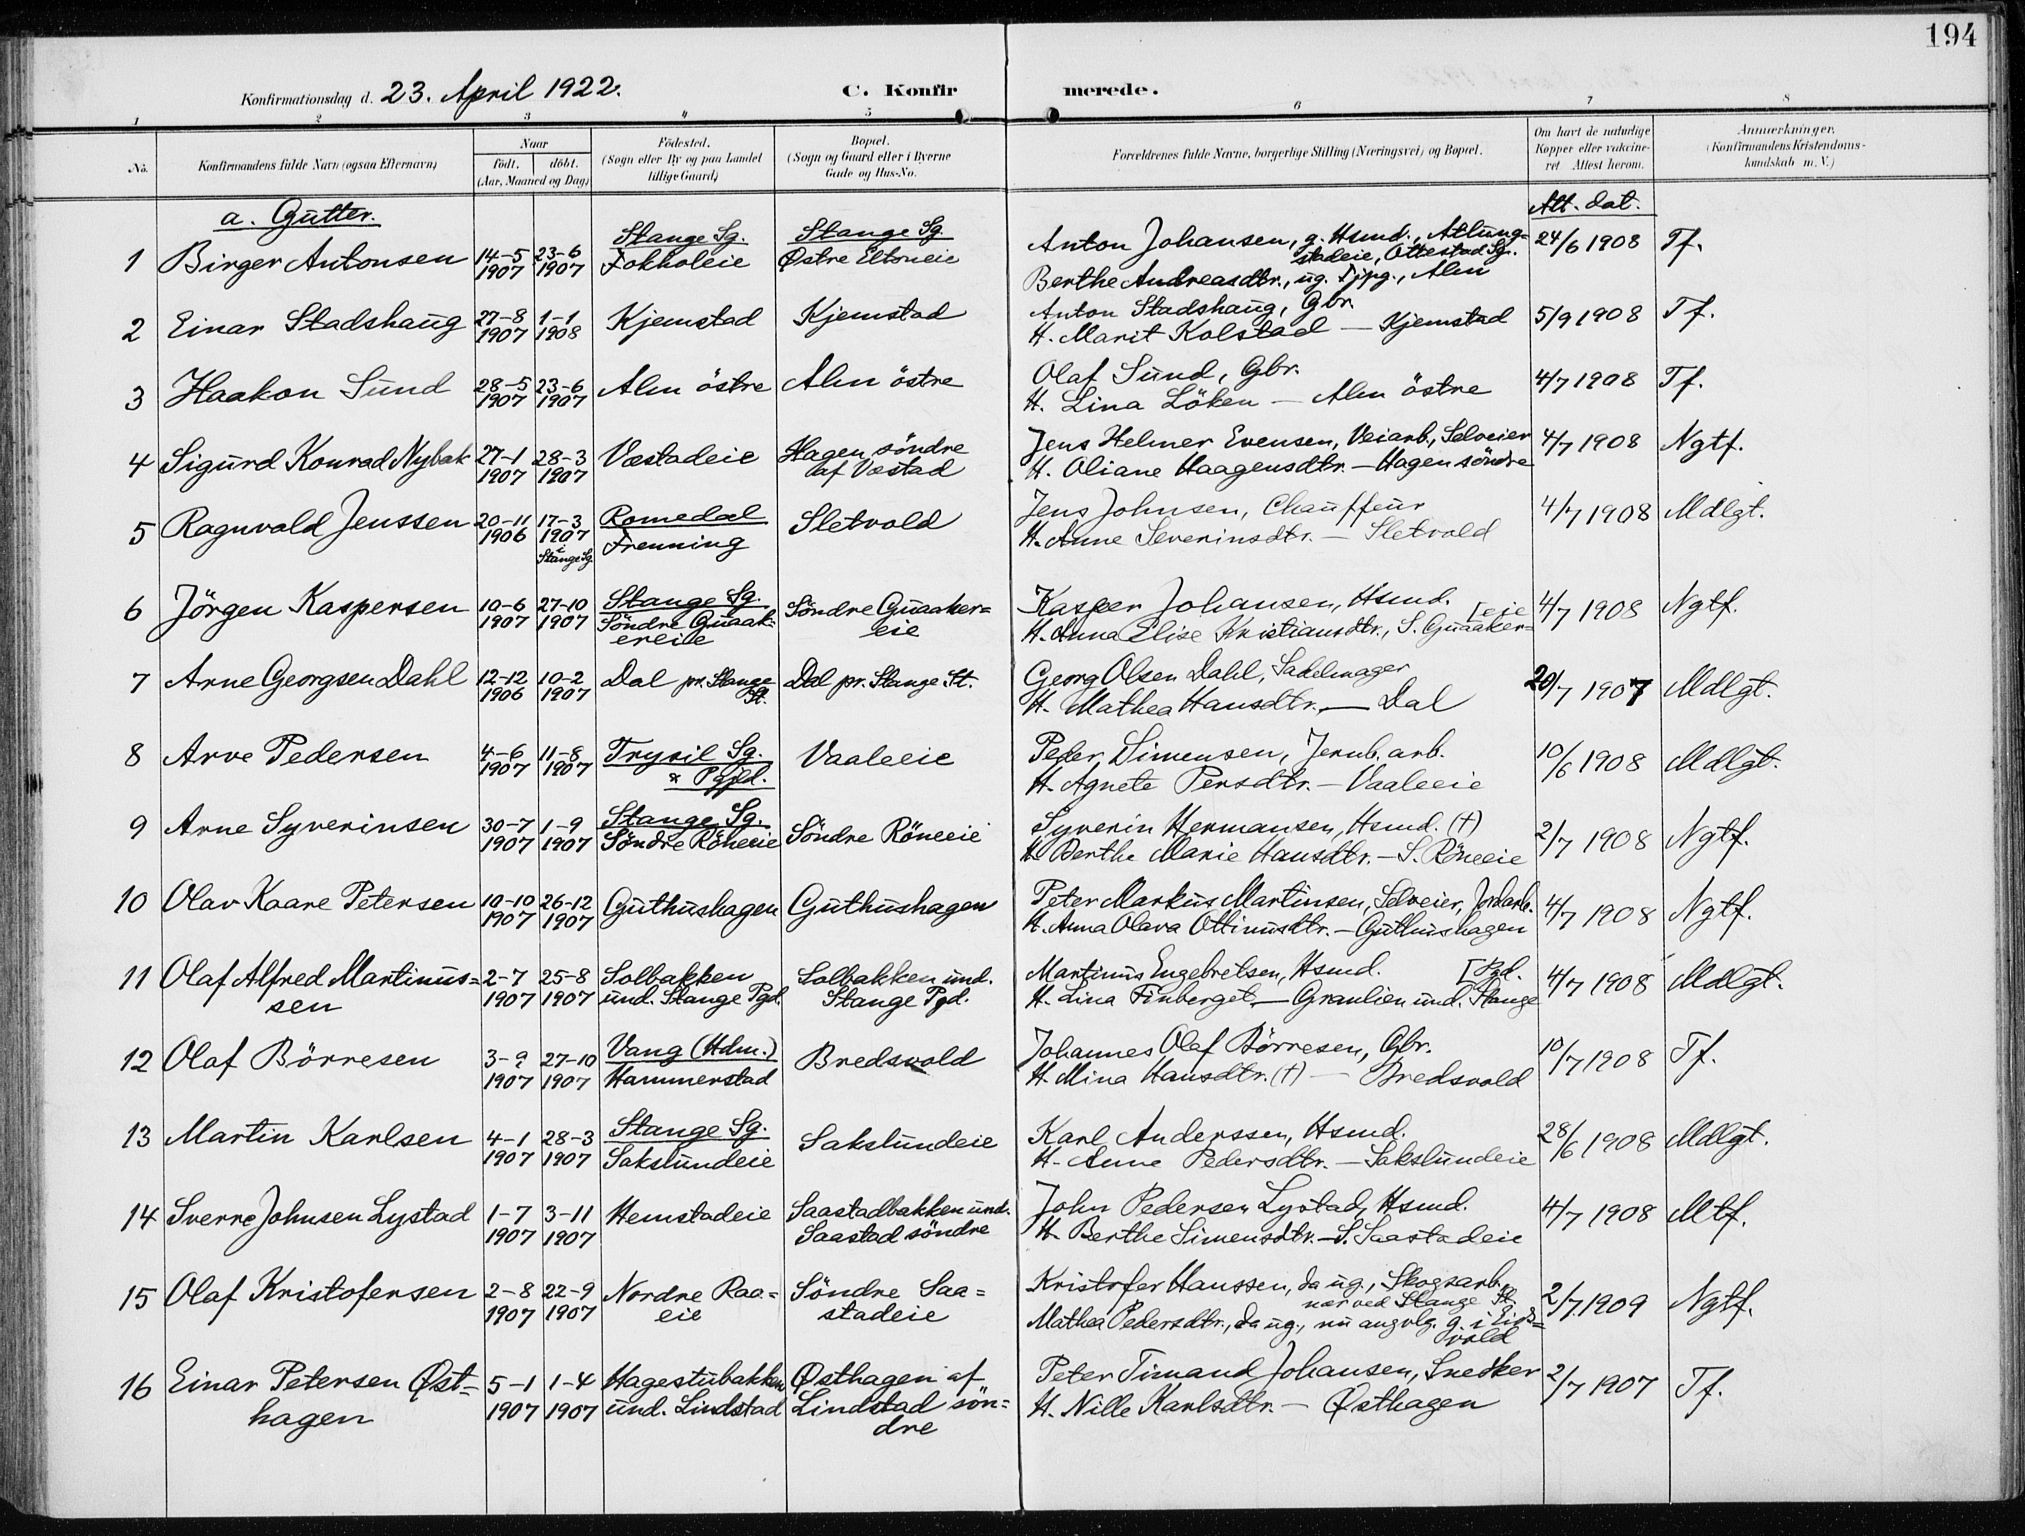 194
Konfirmationsdag d. 23. April 1922. C. Konfir merede.
1 2 3 4 5 6 7 8
No. Konfirmandens fulde Navn (ogsaa Efternavn) Naar födt. döbt. (Aar, Maaned og Dag) Födested. (Sogn eller By og paa Landet tillige Gaard) Bopæl. (Sogn og Gaard eller i Byerne Gade og Hus-No. Forældrenes fulde Navne, borgerlige Stilling (Næringsvei) og Bopæl. Om havt de naturlige Kopper eller vakcineret. Attest herom. Anmerkninger. (Konfirmandens Kristendomskundskab m. V.)
a. Gutter. Att. dat.
1 Birger Antonsen 14-5 1907 23-6 1907 Stange Sg. Fokholeie Stange Sg. Østre Eltoneie Anton Johansen, g. Hsmd., Atlung=
stadeie, Ottestad Sg.
Berthe Andreasdtr., ug. Tjpg., Alm 24/6 1908 Tf.
2 Einar Stadshaug 27-8 1907 1-1 1908 Kjemstad Kjemstad Anton Stadshaug, Gbr.
H. Marit Kolstad — Kjemstad 5/9 1908 Tf.
3 Haakon Sund 28-5 1907 23-6 1907 Alm östre Alm östre Olaf Sund, Gbr.
H. Lina Löken — Alm östre 4/7 1908 Tf.
4 Sigurd Konrad Nybak 27-1 1907 28-3 1907 Væstadeie Hagen söndre af Væstad Jens Helmer Evensen, Veiarb., Selveier
H. Oliane Haagensdtr. — Hagen söndre 4/7 1908 Ngtf.
5 Ragnvald Jenssen 20-11 1906 17-3 1907 i Stange Sg. Romedal Frenning Sletvold Jens Johnsen, Chauffeur
H. Anne Severinsdtr. — Sletvold 4/7 1908 Mdlgt.
6 Jörgen Kaspersen 10-6 1907 27-10 1907 Stange Sg. Söndre Guaak=
ereie Söndre Guaaker=
eie Kasper Johansen, Hsmd. [eie
H. Anna Elise Kristiansdtr., S. Guaaker= 4/7 1908 Ngtf.
7 Arne Georgsen Dahl 12-12 1906 10-2 1907 Dal pr. Stange St. Dal pr. Stange St. Georg Olsen Dahl, Sadelmager
H. Mathea Hansdtr. — Dal 20/7 1907 Mdlgt.
8 Arve Pedersen 4-6 1907 11-8 1907 Trysil Sg. * Pgjld. Vaaleeie Peder Simensen, Jernb. arb.
H. Agnete Persdtr. — Vaaleeie 10/6 1908 Mdlgt.
9 Arne Syverinsen 30-7 1907 1-9 1907 Stange Sg. Söndre Röneeie Söndre Röneeie Syverin Hermansen, Hsmd. (†)
H. Berthe Marie Hansdtr. — S. Röneeie 2/7 1908 Ngtf.
10 Olav Kaare Petersen 10-10 1907 26-12 1907 Guthushagen Guthushagen Peter Markus Martinsen, Selveier, Jordarb.
H. Anna Olava Ottinusdtr. — Guthushagen 4/7 1908 Ngtf.
11 Olaf Alfred Martinus=
sen 2-7 1907 25-8 1907 Solbakken und. Stange Pgd. Solbakken und. Stange Pgd. Martinus Engebretsen, Hsmd. [Pgd.
H. Lina Finberget — Granlien und. Stange 4/7 1908 Mdlgt.
12 Olaf Börresen 3-9 1907 27-10 1907 Vang (Hdm.) Hammerstad Bredsvold Johannes Olaf Börresen, Gbr.
H. Mina Hansdtr. (†) — Bredsvold 10/7 1908 Tf.
13 Martin Karlsen 4-1 1907 28-3 1907 Stange Sg. Sakslundeie Sakslundeie Karl Anderssen, Hsmd.
H. Anne Pedersdtr. — Sakslundeie 28/6 1908 Mdlgt.
14 Sverre Johnsen Lystad 1-7 1907 3-11 1907 Hemstadeie Saastadbakken und. Saastad söndre John Pedersen Lystad, Hsmd.
H. Berthe Simensdtr. — S. Saastadeie 4/7 1908 Mtf.
15 Olaf Kristofersen 2-8 1907 22-9 1907 Nordre Raa=
eie Söndre Saa=
stadeie Kristofer Hanssen, da ug., Skogsarb.
nær ved Stange St.
Mathea Pedersdtr., da ug., nu angvlg. g. i Eids=
vold 2/7 1909 Ngtf.
16 Einar Petersen Øst=
hagen 5-1 1907 1-4 1907 Hagestubakken und. Lindstad Østhagen af Lindstad sön=
dre Peter Timand Johansen, Snedker
H. Nille Karlsdtr. — Østhagen 2/7 1907 Tf.